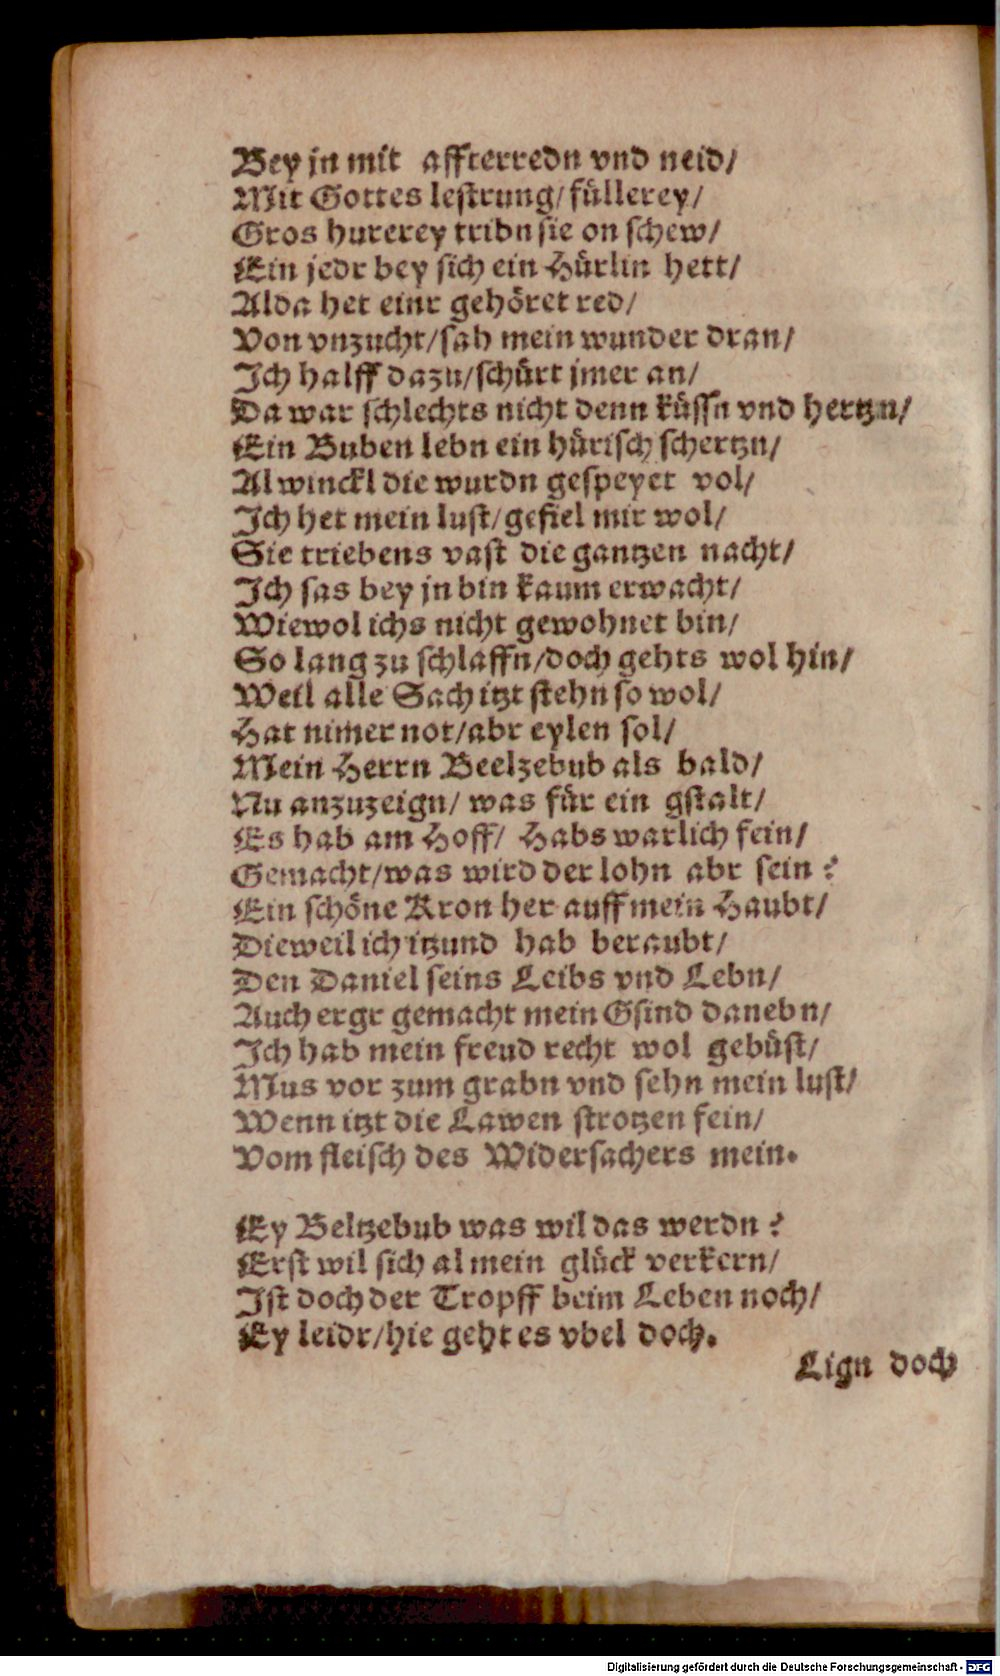 Bey jn mit affterredn vnd neid/
Mit Gottes lestrung/ füllerey/
Gros hurerey tribn sie on schew/
Ein jedr bey sich ein Hürlin hett/
Alda het einr gehöret red/
Von vnzucht/sah mein wunder dran/
Ich halff dazu/schürt jmer an/
Da war schlechts nicht denn küssn vnd hertzn/
Ein Buben lebn ein hürisch schertzn/
Al winckl die wurdn gespeyet vol/
Ich het mein lust/gefiel mir wol/
Sie triebens vast die gantzen nacht/
Ich sas bey jn bin kaum erwacht/
Wiewol ichs nicht gewohnet bin/
So lang zu schlaffn/doch gehts wol hin/
Weil alle Sach itzt stehn so wol/
Hat nimer not/abr eylen sol/
Mein Herrn Beelzebub als bald/
Nu anzuzeign/ was für ein gstalt/
Es hab am Hoff/ Habs warlich fein/
Gemacht/was wird der lohn abr sein?
Ein schöne Kron her auff mein Haubt/
Dieweil ich itzund hab beraubt/
Den Daniel seins Leibs vnd Lebn/
Auch ergr gemacht mein Gsind danebn/
Ich hab mein freud recht wol gebüst/
Mus vor zum grabn vnd sehn mein lust/
Wenn itzt die Lawen strotzen fein/
Vom fleisch des Widersachers mein.
Ey Beltzebub was wil das werdn?
Erst wil sich al mein glück verkern/
Ist doch der Tropff beim Leben noch/
Ey leidr/hie geht es vbel doch.
Lign doch
Digitalisierung gefördert durch die Deutsche Forschungsgemeinschaft - DFG